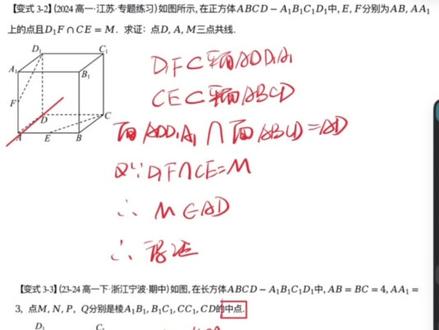 【变式 3-2】(2024 高一·江苏·专题练习)如图所示,在正方体ABCD − A₁B₁C₁D₁中, E, F分别为AB, AA₁
上的点且D₁F ∩ CE = M. 求证:点D, A, M三点共线.
D₁
C₁
A₁
B₁
F
D
C
A
E
B
D₁F⊂平面ADD₁A₁
CE⊂平面ABCD
面ADD₁A₁∩面ABCD=AD
又∵D₁F∩CE=M
∴ M∈AD
∴ 得证
【变式 3-3】(23-24 高一下·浙江宁波·期中)如图,在长方体ABCD − A₁B₁C₁D₁中, AB = BC = 4, AA₁ =
3, 点M, N, P, Q分别是棱A₁B₁, B₁C₁, CC₁, CD的中点.
D₁
C₁